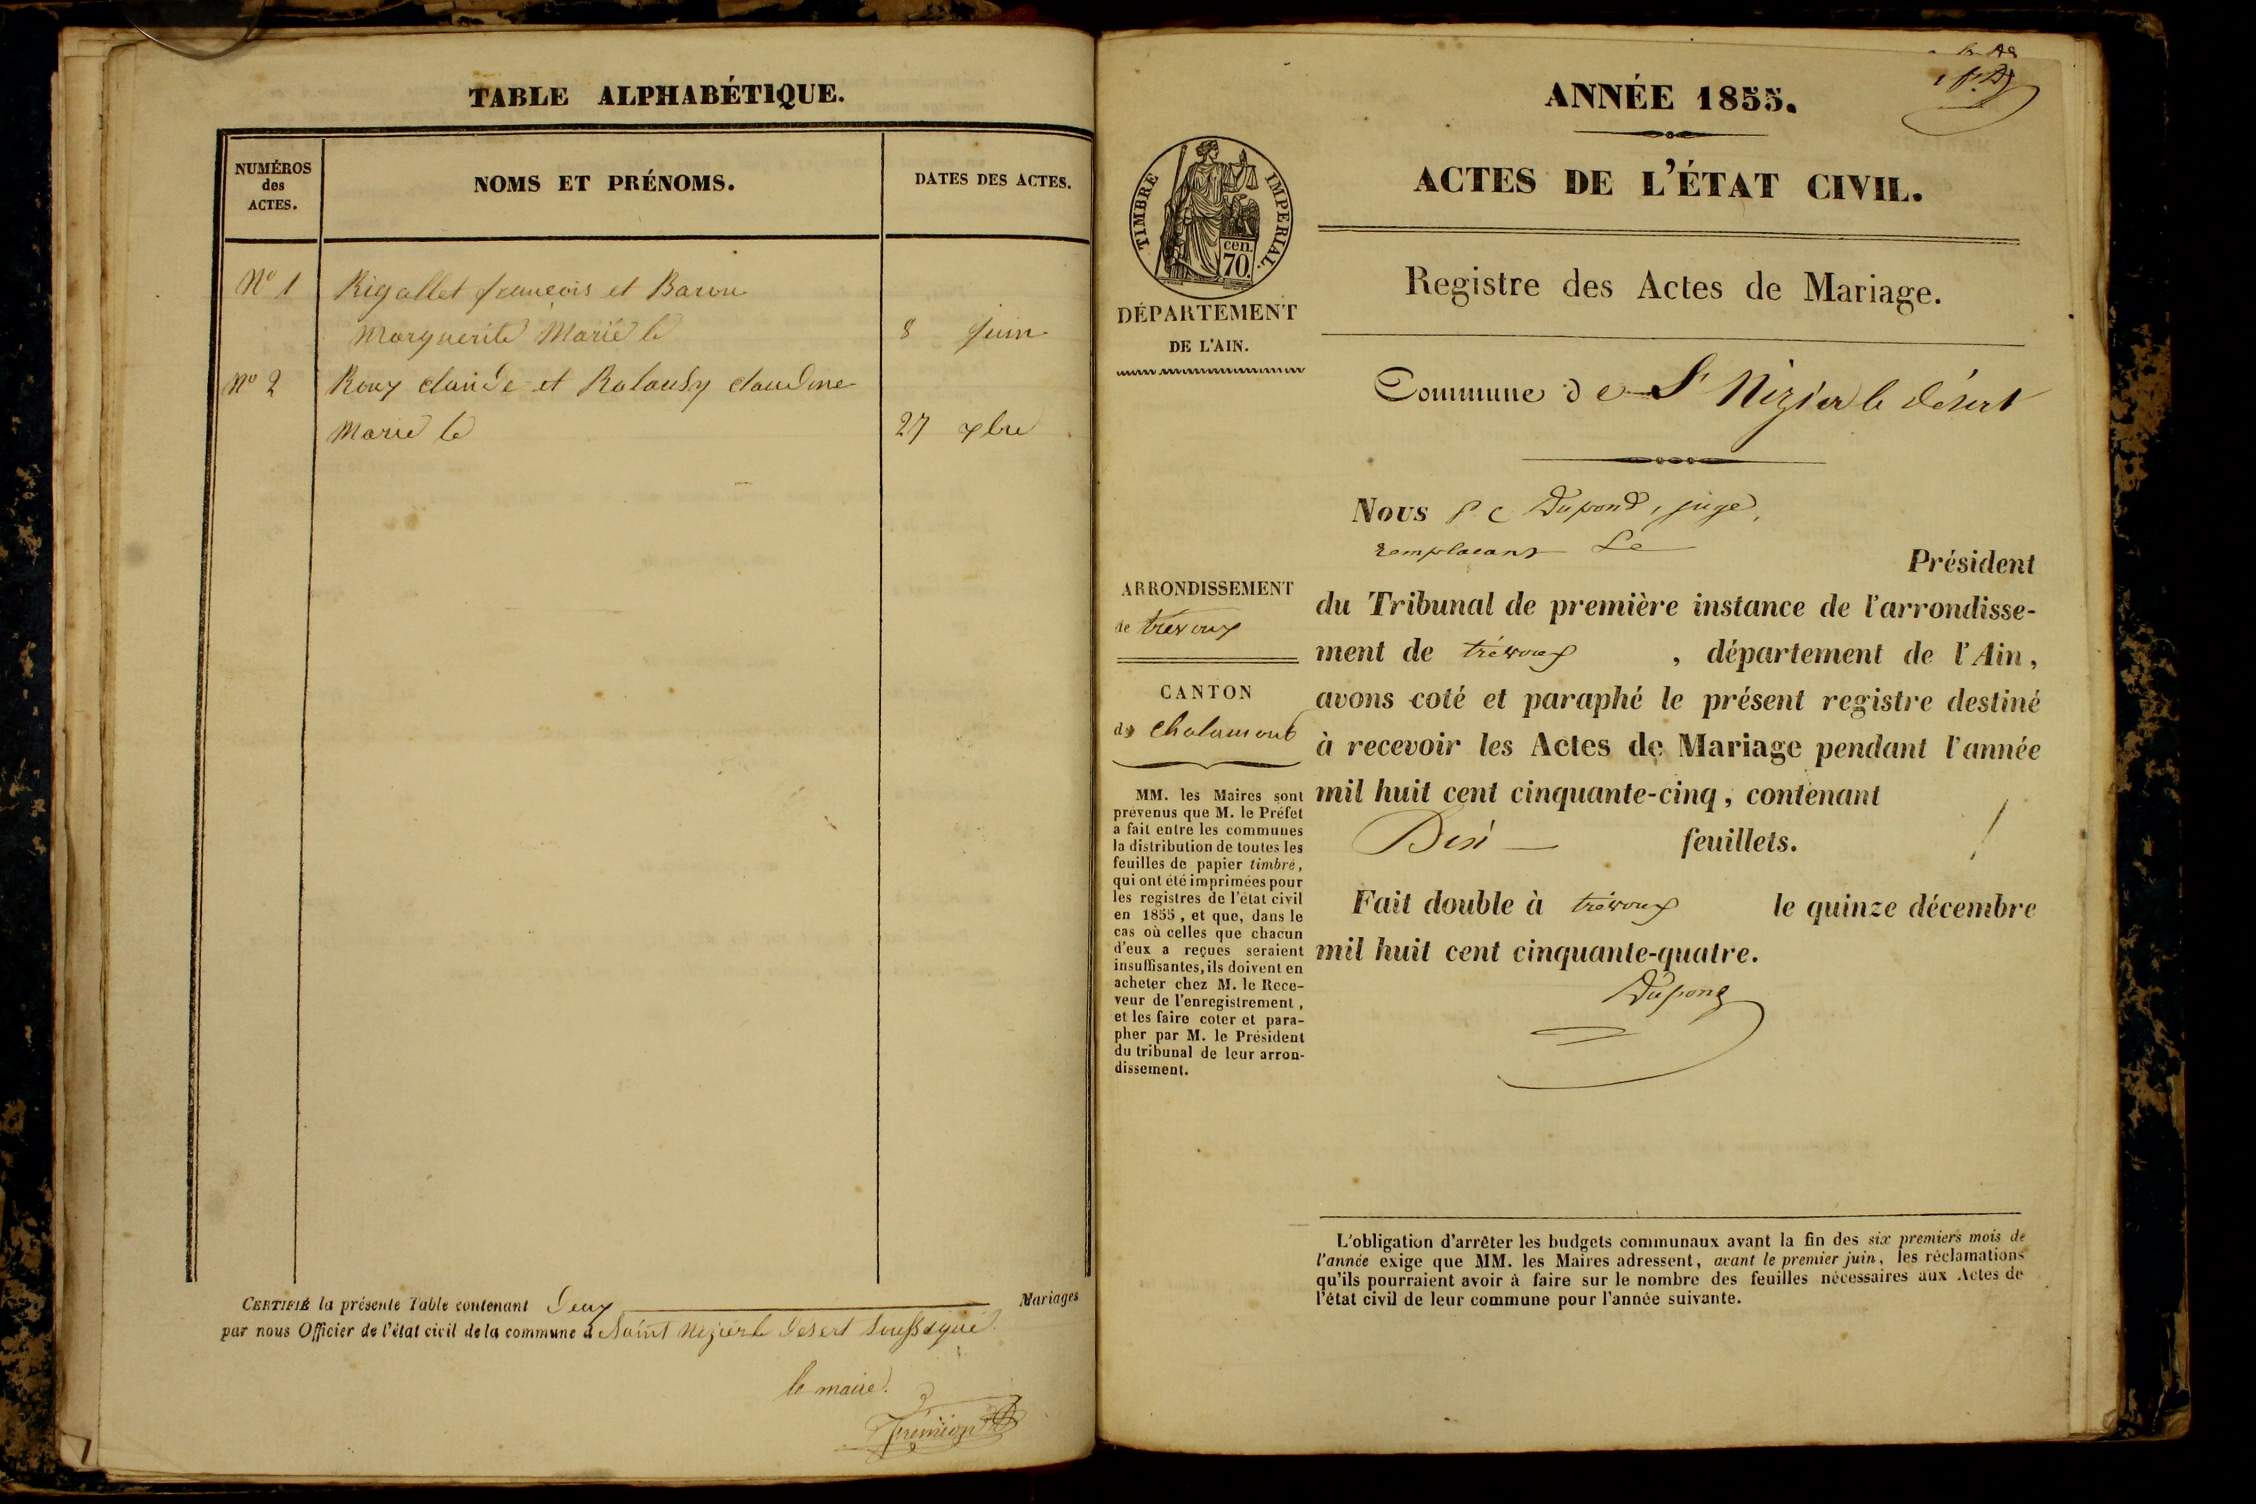 TABLE ALPHABÉTIQUE.
NUMÉROS
des
ACTES.
NOMS ET PRÉNOMS.
DATES DES ACTES.
No 1 Rigollet francois et Baron
Marguerite Marié le 8 juin
No 2 Roux claude et claudine
Marié le 27 xbre
CERTIFIÉ la présente Table contenant deux Mariages
par nous Officier de l'état civil de la commune d Saint Nizier le désert soussigné
le maire.
ANNÉE 1855.
ACTES DE L'ÉTAT CIVIL.
TIMBRE IMPERIAL.
cen.
70.
DÉPARTEMENT
DE L'AIN.
Registre des Actes de Mariage.
Commune de St Nizier le désert
ARRONDISSEMENT
de trevoux
CANTON
de Chalamont
MM. les Maires sont
prévenus que M. le Préfet
a fait entre les communes
la distribution de toutes les
feuilles de papier timbré,
qui ont été imprimées pour
les registres de l'état civil
en 1855, et que, dans le
cas où celles que chacun
d'eux a reçues seraient
insuffisantes, ils doivent en
acheter chez M. le Rece-
veur de l'enregistrement,
et les faire coter et para-
pher par M. le Président
du tribunal de leur arron-
dissement.
Nous P. C Dupond, juge,
remplacant Le Président
du Tribunal de première instance de l'arrondisse-
ment de trévoux, département de l'Ain,
avons coté et paraphé le présent registre destiné
à recevoir les Actes de Mariage pendant l'année
mil huit cent cinquante-cinq, contenant
Dix feuillets.
Fait double à trévoux le quinze décembre
mil huit cent cinquante-quatre.
Dupond
L'obligation d'arrêter les budgets communaux avant la fin des six premiers mois de
l'année exige que MM. les Maires adressent, avant le premier juin, les réclamations
qu'ils pourraient avoir à faire sur le nombre des feuilles nécessaires aux Actes de
l'état civil de leur commune pour l'année suivante.